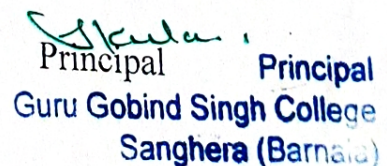 Principal Principal
Guru Gobind Singh College
Sanghera (Barnala)